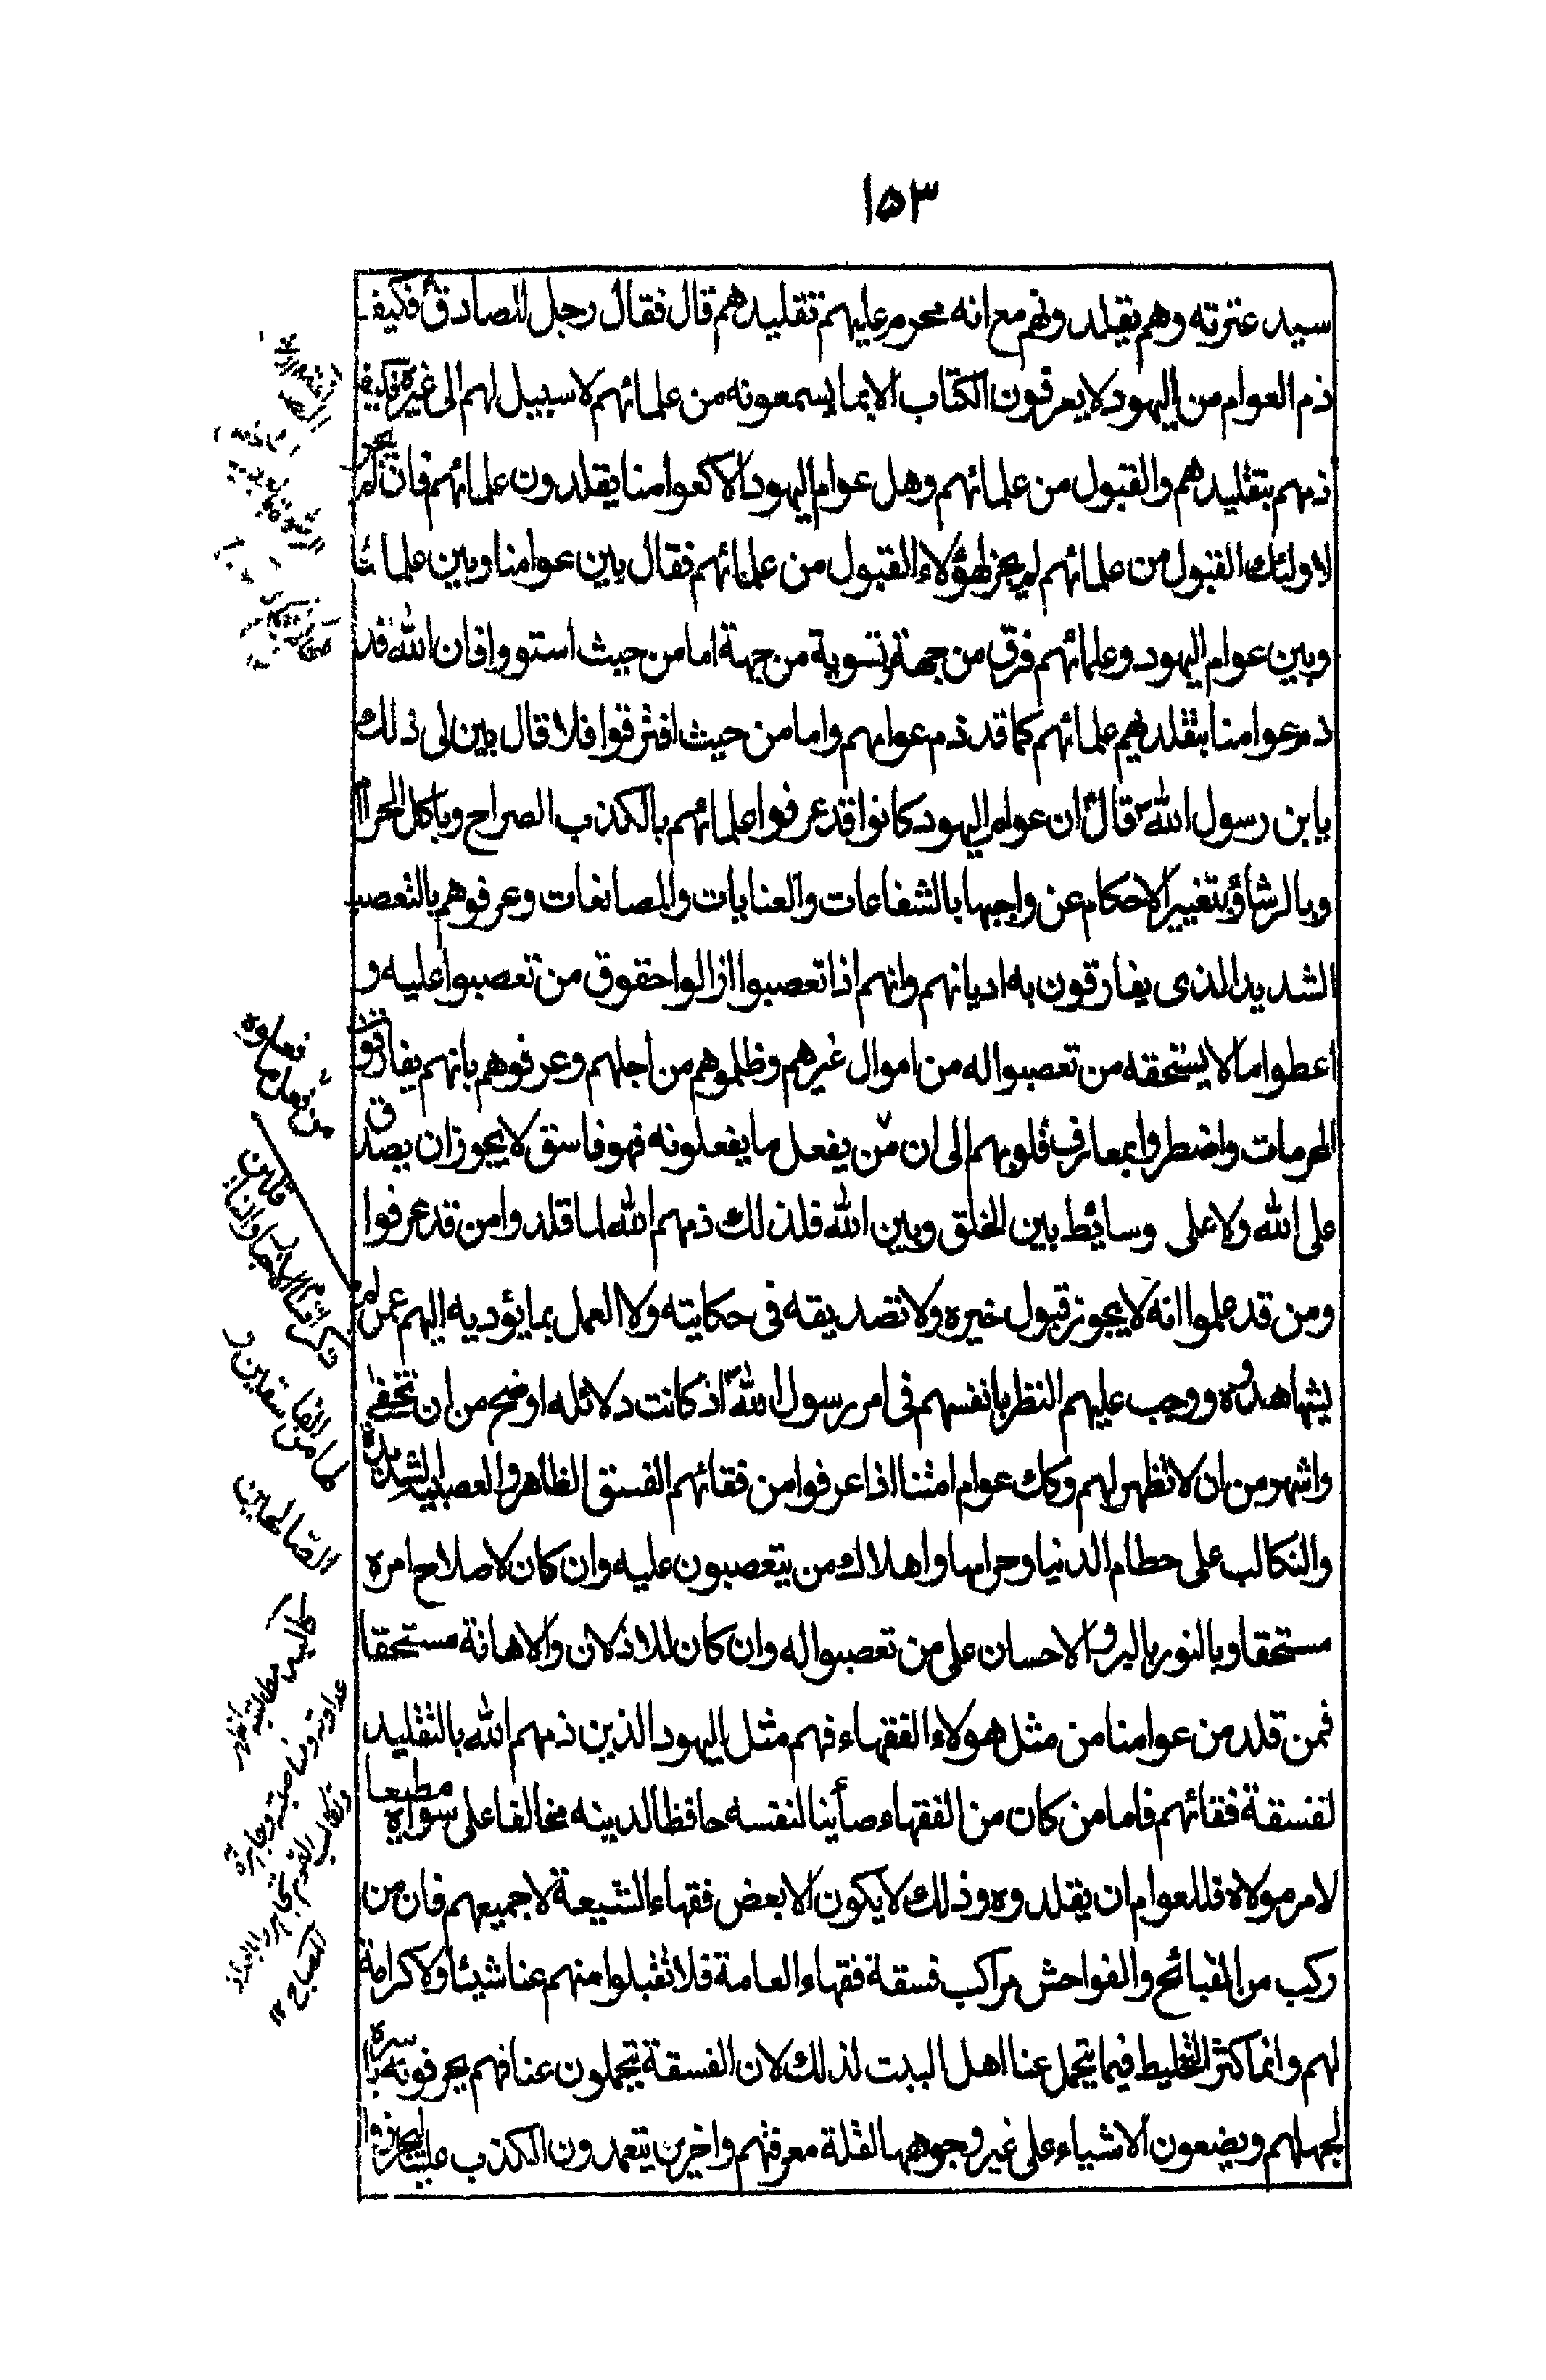 ١٥٣
سيد عترته وهم يقلدونهم مع انه محرم عليهم تقليدهم قال فقال رجل للصادق ع فكيف
ذم العوام من اليهود لا يعرفون الكتاب الا بما يسمعونه من علمائهم لا سبيل لهم الى غيره فكيف
ذمهم بتقليدهم والقبول من علمائهم وهل عوام اليهود الا كعوامنا يقلدون علمائهم فان لم يجز
لاولئك القبول من علمائهم لم يجز لهؤلاء القبول من علمائهم فقال بين عوامنا وبين علمائنا
وبين عوام اليهود وعلمائهم فرق من جهة وتسوية من جهة اما من حيث استووا فان الله قد
ذم عوامنا بتقلدهم علمائهم كما قد ذم عوامهم واما من حيث افترقوا فلا قال بين لى ذلك
يابن رسول الله ص قال ع ان عوام اليهود كانوا قد عرفوا علمائهم بالكذب الصراح وباكل الحرام
وبالرشاؤ بتغيير الاحكام عن واجبها بالشفاعات والعنايات والمصانعات وعرفوهم بالتعصب
الشديد الذى يفارقون به اديانهم وانهم اذا تعصبوا ازالوا حقوق من تعصبوا عليه و
اعطوا ما لا يستحقه من تعصبوا له من اموال غيرهم وظلموهم من اجلهم وعرفوهم بانهم يفارقون
المحرمات واضطروا بمعارف قلوبهم الى ان من يفعل ما يفعلونه فهو فاسق لا يجوز ان يصدق
على الله ولا على وسايط بين الخلق وبين الله فلذلك ذمهم الله لما قلدوا من قد عرفوا
ومن قد علموا انه لا يجوز قبول خبره ولا تصديقه فى حكايته ولا العمل بما يؤديه اليهم عمن لم
يشاهدوه ووجب عليهم النظر بانفسهم فى امر رسول الله ص اذ كانت دلائله اوضح من ان تخفى
واشهر من ان لا تظهر لهم وكك عوام امتنا اذا عرفوا من فقائهم الفسق الظاهر والعصبية الشديدة
والتكالب على حطام الدنيا وحرامها واهلاك من يتعصبون عليه وان كان لاصلاح امره
مستحقا وبالنور بالبر والاحسان على من تعصبوا له وان كان للاذلال والاهانة مستحقا
فمن قلد من عوامنا من مثل هولاء الفقهاء فهم مثل اليهود الذين ذمهم الله بالتقليد
لفسقة فقائهم فاما من كان من الفقهاء صائنا لنفسه حافظا لدينه مخالفا على هواه مطيعا
لامر مولاه فللعوام ان يقلدوه وذلك لا يكون الا بعض فقهاء الشيعة لا جميعهم فان من
ركب من القبائح والفواحش مراكب فسقة فقهاء العامة فلا تقبلوا منهم عنا شيئا ولا كرامة
لهم وانما كثر التخليط فيما يتحمل عنا اهل البيت لذلك لان الفسقة يتحملون عنا فهم يحرفونه باسره
لجهلهم ويضعون الاشياء على غير وجوهها لقلة معرفتهم واخرين يتعمدون الكذب علينا ليجروا
الصالحين